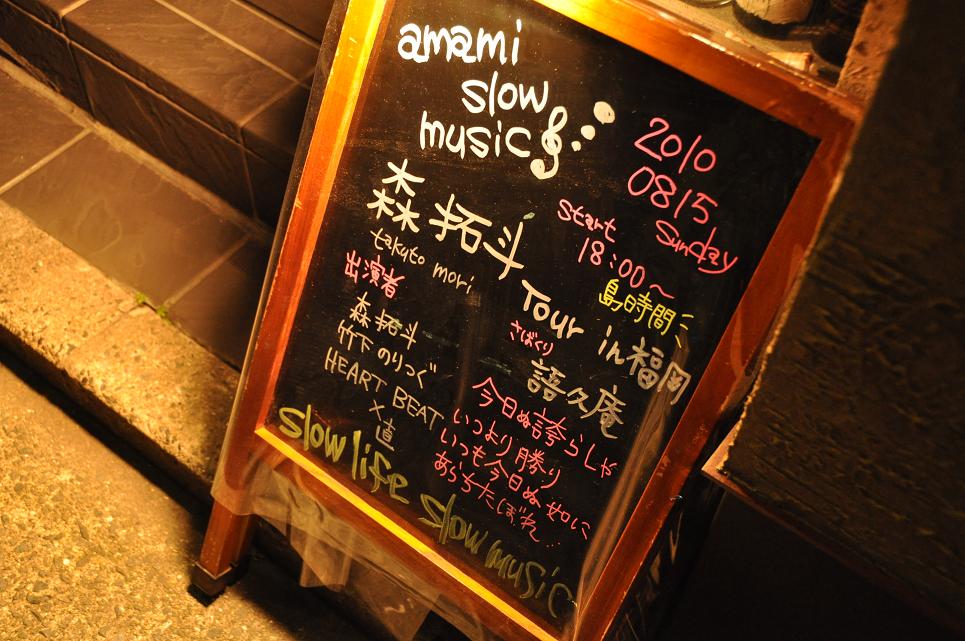 amami
slow
music
2010
0815
Sunday
start
18:00~
島時間
森 拓斗
takuto mori
Tour in 福岡
さばくり
語久庵
出演者
森 拓斗
竹下 のりつぐ
HEART BEAT
×直
今日ぬ誇らしゃ
いつより勝り
いつも今日ぬ如に
あらちたぼれ...
slow life slow music